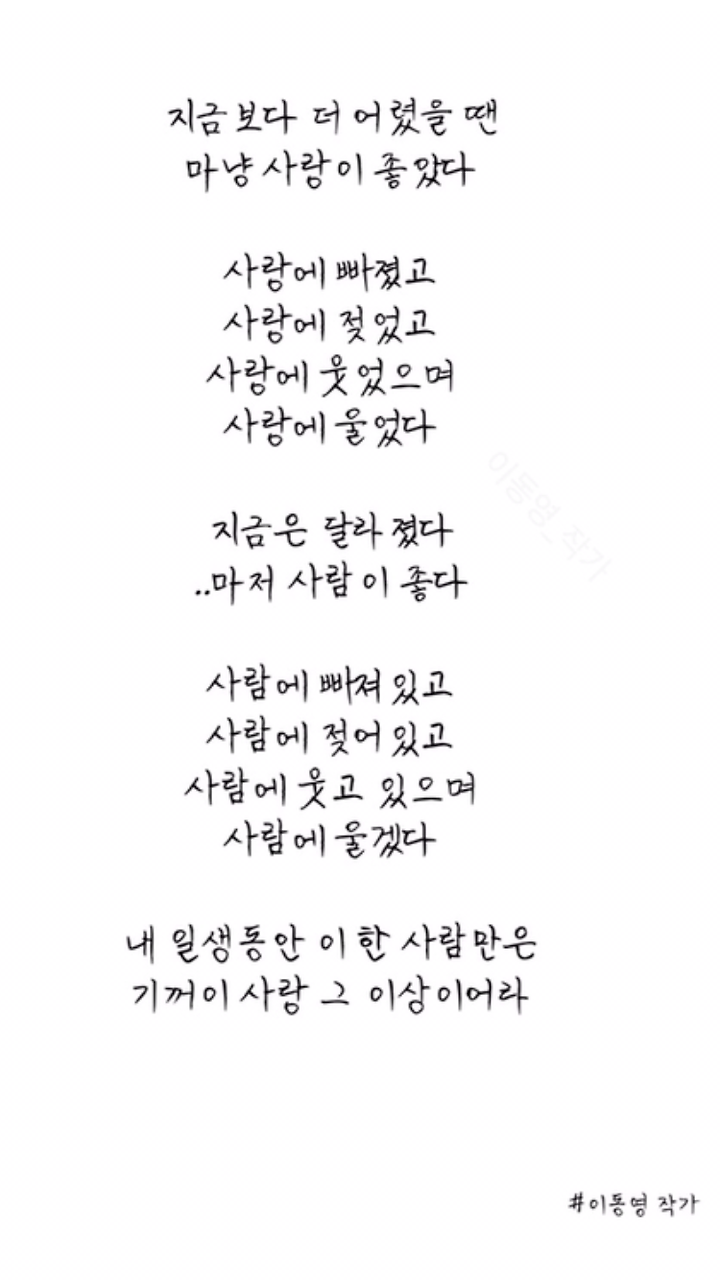 지금보다 더 어렸을 땐
마냥 사랑이 좋았다
사랑에 빠졌고
사랑에 젖었고
사랑에 웃었으며
사랑에 울었다
이동영_작가
지금은 달라졌다
..마저 사람이 좋다
사람에 빠져있고
사람에 젖어있고
사람에 웃고 있으며
사람에 울겠다
내 일생동안 이 한 사람만은
기꺼이 사랑 그 이상이어라
#이동영 작가